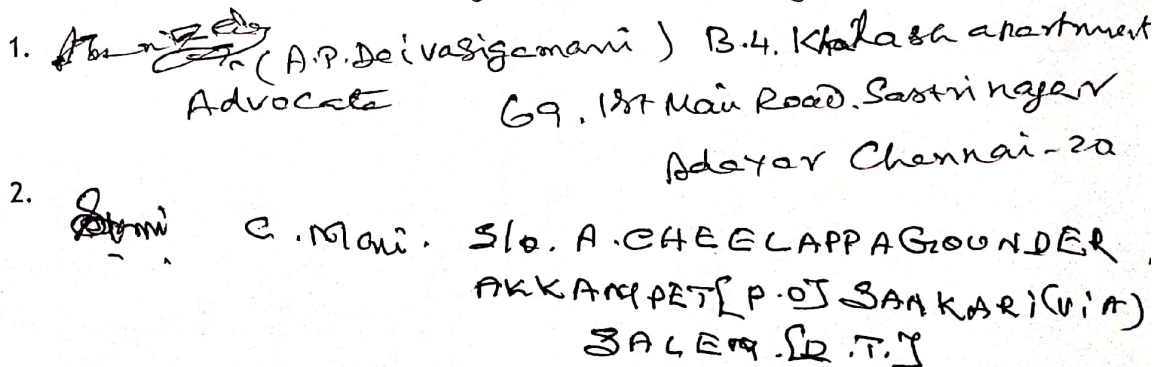 1. (A.P. Deivasigamani) B.4. Khailash apartment
Advocate 69, 1st Main Road. Sastri nagar
Adayar Chennai-20
2. C. Mani. S/o. A. CHEELAPPAGOUNDER,
AKKAMPET[P.O] SANKARI(ViA)
SALEM.[D.T.]